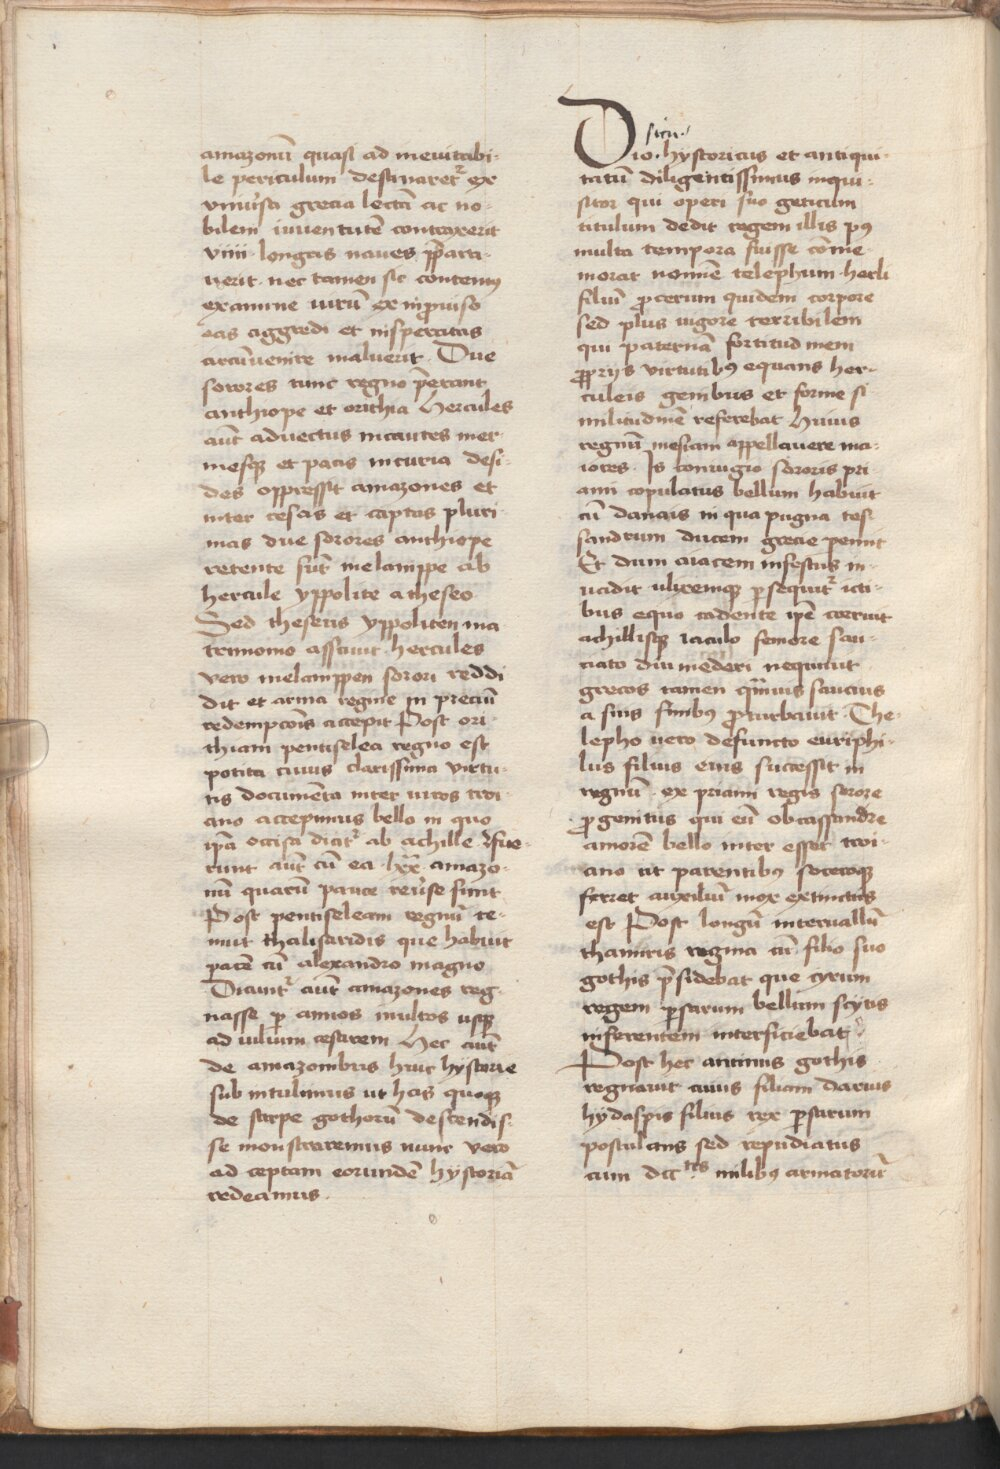 amazonū quasi ad ineuitabi-
le periculum destinaretr̄ ex
vniūsa grecia lectā ac no-
bilem iuuentutē contraxerit
viiii· longas naues p̄para-
uerit· nec tamen sic contentꝰ
examine uirū ex inꝓuiso
eas aggredi et insperatas
circūuenire maluerit· Due
sorores tunc regno p̄erant
anthiope et orithia Hercules
aūt aduectus incautes iner-
mesqȝ et pacis incuria desi-
des oppressit amazones et
inter cesas et captas pluri-
mas due sorores anthiope
retente sūt melanippe ab
hercule yppolite a theseo
Sed theseus yppoliten ma
trimonio assciuit· hercules
vero melanippen sorori reddi
dit et arma regine in preciū
redempcōis accepit Post ori-
thiam pentiselea regno est
potita cuius clarissima virtu-
tis documēta inter uiros troi-
ano accepimus bello in quo
ip̄a occisa dicitr̄ ab achille· fue-
runt aūt cū ea· lxx̄· amazo-
nū quarū pauce reūse sunt
Post pentiseleam regnū te-
nuit thalisaridis que habuit
pacē cū alexandro magno
Dicuntr̄ aūt amazones reg-
nasse ꝑ annos multos usqȝ
ad iulium cesarem Hec aūt
de amazonibus huic hystorie
sub intulimus ut has quoqȝ
de stirpe gothorū descendis-
se monstraremus nunc vero
ad ceptam eorundē hystoriā
redeamus·
sicu·
Dio· hystoricus et antiqui-
tatū diligentissimus inqui-
sitor qui operi suo geticum
titulum dedit regem illis pꝰ
multa tempora fuisse cōme-
morat nomīe telephum· herli
filiū ꝓcerum quidem corpore
sed plus uigore terribilem
qui paternā fortitudinem
ꝓprijs virtutibꝰ equans her-
culeis genibus et forme si
militudinē referebat Huius
regnū mesiam appellauere ma-
iores· Is coniugio sororis pri
ami copulatus bellum habuit
cū danais in qua pugna tes-
sandrum ducem grecie pemit
Et dum aiacem infestus in-
uadit ulixemqȝ ꝑsequitr̄ icti-
bus equo cadente ip̄e corruit
achillisqȝ iaculo femore sau-
ciato diu mederi nequiuit
grecos tamen qm̄uis saucius
a suis finibꝰ ꝓturbauit· The-
lepho uero defuncto euriphi-
lus filius eius successit in
regnū· ex priami regis sorore
ꝓgenitus qui eū ob cassandre
amorē bello inter esset troi-
ano ut parentibꝰ soceroqȝ
ferret auxiliū mox extinctus
est Post longū interuallū
thamiris regina cū filio suo
gothis p̄sidebat que cyrum
regem ꝑsarum bellum scytis
inferentem interficiebat
Post hec antinus gothis
regnauit cuius filiam darius
hydaspis filius rex ꝑsarum
postulans sed repudiatus
cum dcc tis milibꝰ armatorū